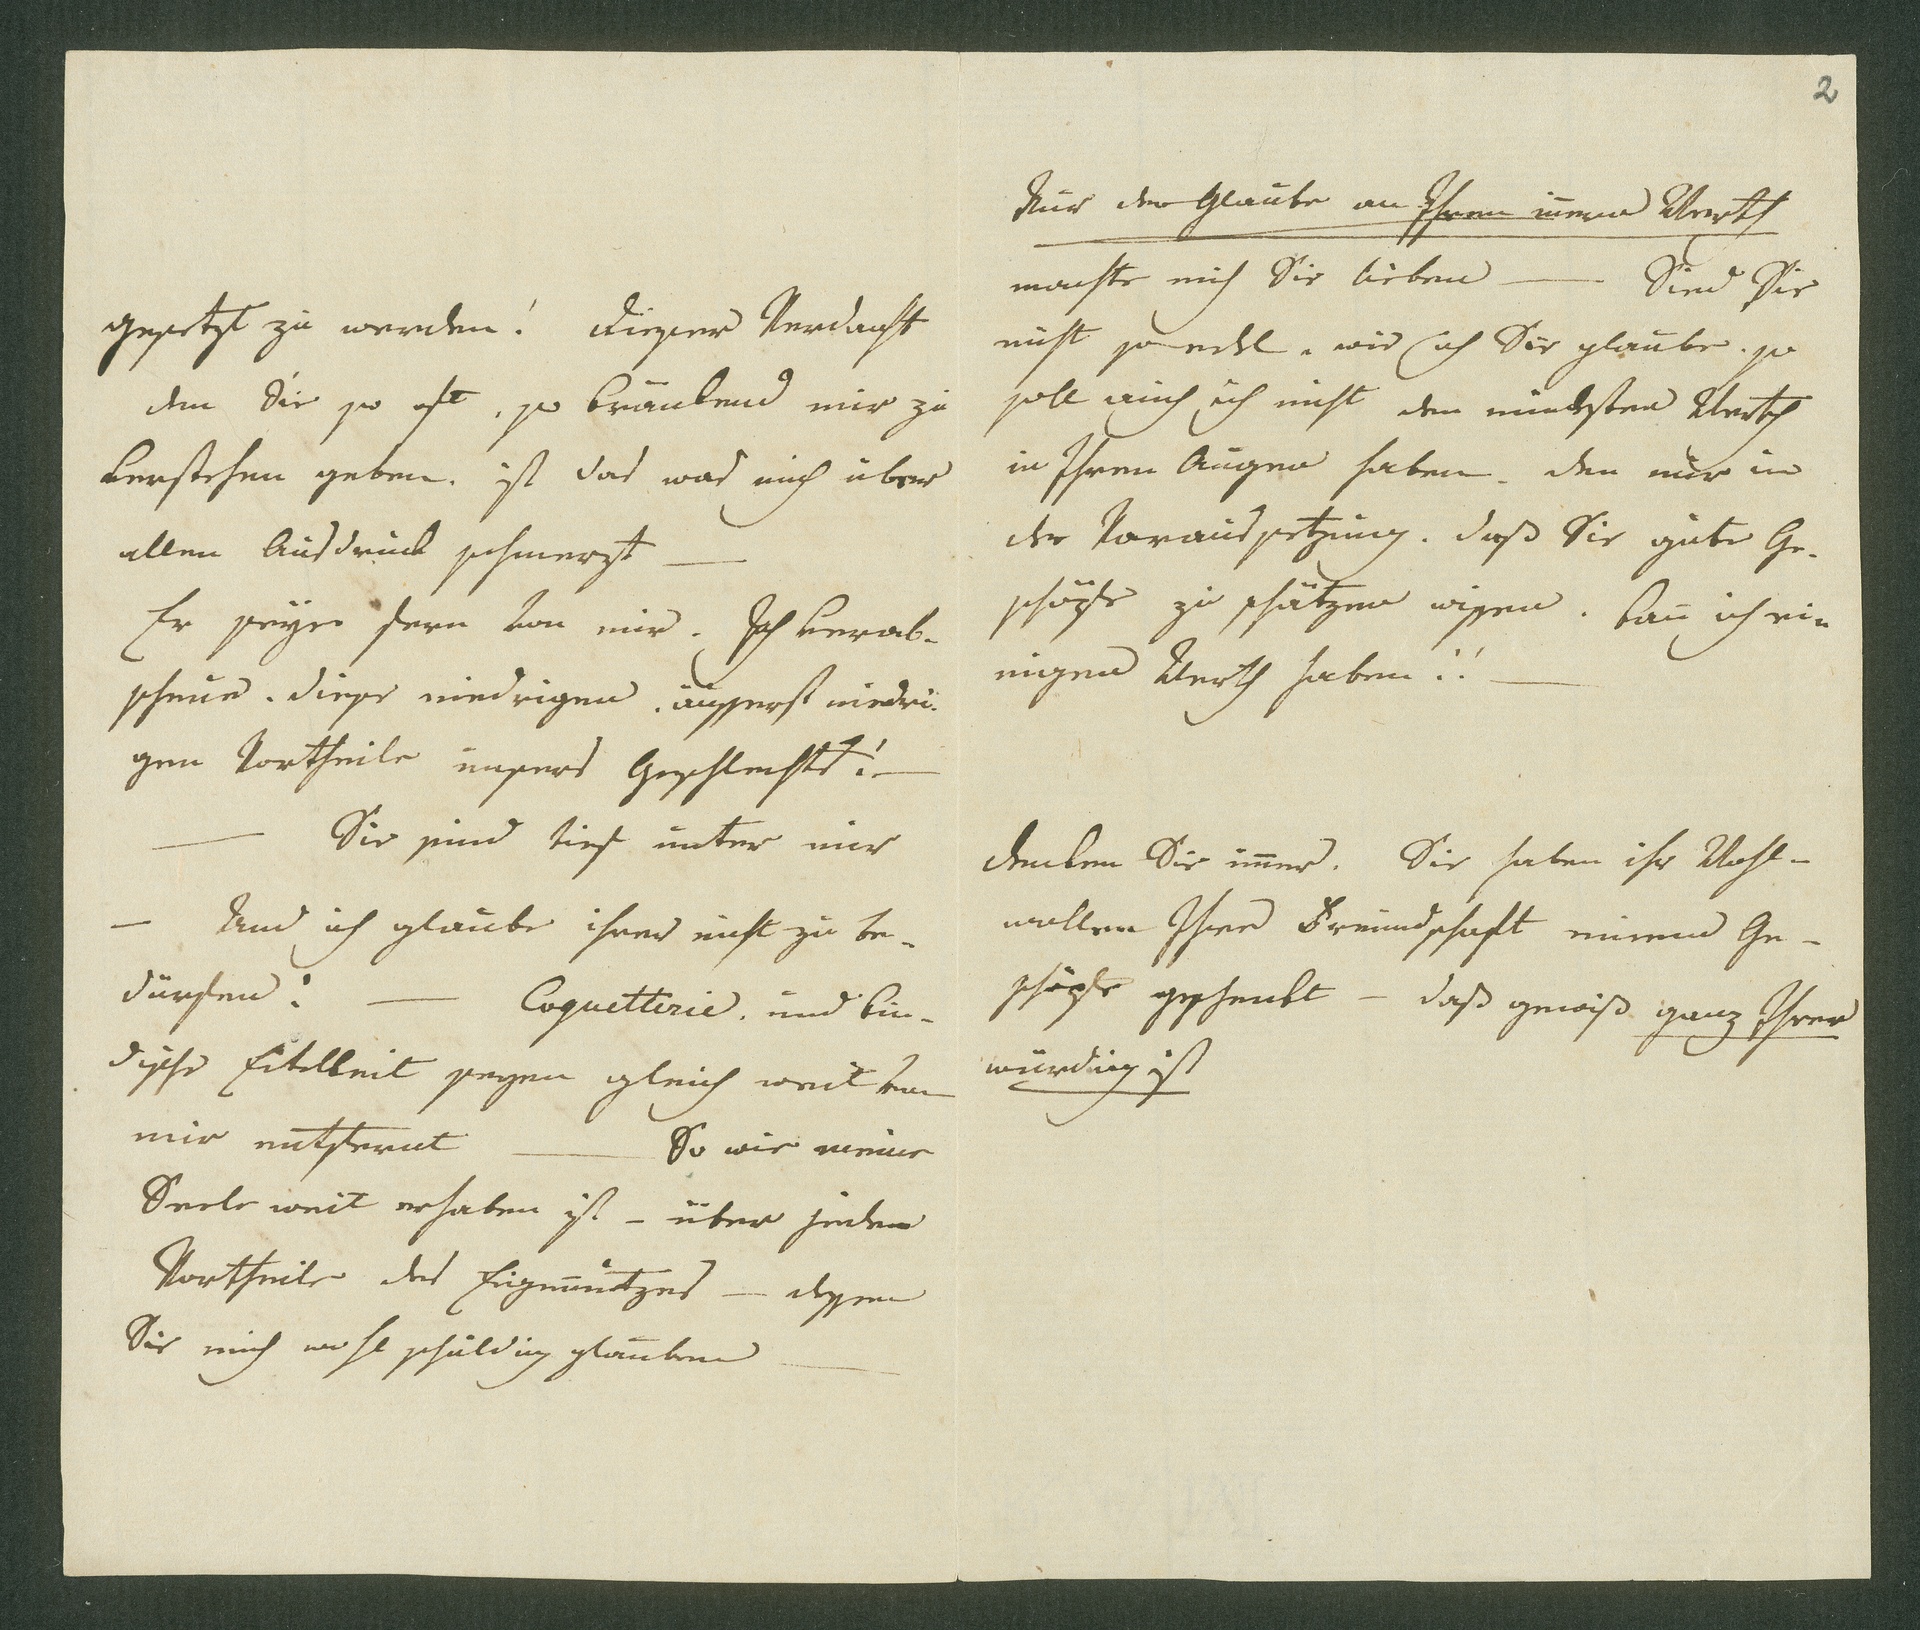 gesetzt zu werden! Dieser Verdacht
den Sie so oft, so kränkend mir zu
verstehen geben. ist das was mich über
allen Ausdruck schmerzt —
Er seÿe fern von mir. Ich verab-
scheue. diese niedrigen, äusserst niedri-
gen Vortheile unsers Geschlechts! —
— Sie sind tief unter mir
— Und ich glaube ihrer nicht zu be-
dürfen! — Coquetterie. und kin-
dische Eitelkeit seyen gleich weit von
mir entfernt — So wie meine
Seele weit erhaben ist – über jeden
Vortheile des Eigennützes — dessen
Sie mich wohl schuldig glauben —
2
Nur der Glaube an Ihren innern Werth
machte mich Sie lieben — Sind Sie
nicht so edel. wie ich Sie glaube. so
soll auch ich nicht den mindesten Werth
in Ihren Augen haben. den nur in
der Voraussetzung. daß Sie gute Ge-
schöpfe zu schätzen wissen. kann ich ei-
nigen Werth haben!! —
denken Sie immer. Sie haben ihr Wohl-
wollen Ihre Freundschaft einem Ge-
schöpfe geschenkt – daß gewiß ganz Ihrer
würdig ist